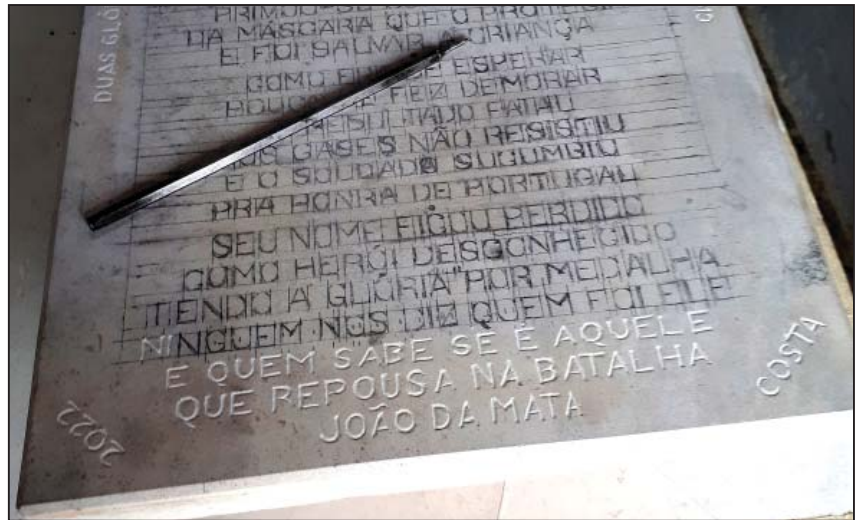 DUAS GLÓ
DA MÁSCARA QUE O
E FOI SALVAR A CRIANÇA
COMO DE ESPERAR
FEZ DEMORAR
RESULTADO FATAL
GASES NÃO RESISTIU
E O SOLDADO SUCUMBIU
PRA HONRA DE PORTUGAL
SEU NOME FICOU PERDIDO
COMO HERÓI DESCONHECIDO
TENDO A GLÓRIA POR MEDALHA
NINGUEM NOS DIZ QUEM FOI ELE
E QUEM SABE SE É AQUELE
QUE REPOUSA NA BATALHA
JOÃO DA MATA
2022
COSTA